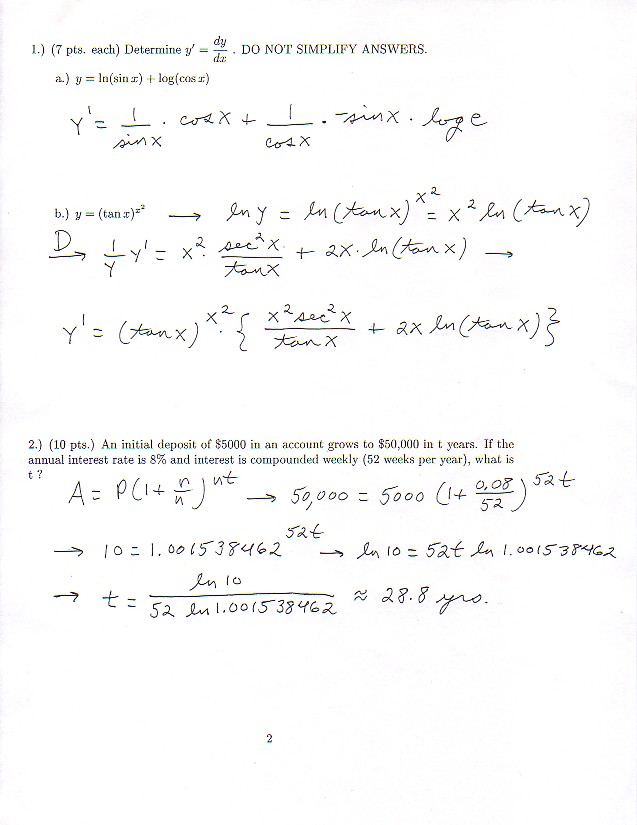 1.) (7 pts. each) Determine y′ = dy/dx . DO NOT SIMPLIFY ANSWERS.
a.) y = ln(sin x) + log(cos x)
Y' = 1/sinx · cosx + 1/cosx · -sinx · log e
b.) y = (tan x)^x² → ln y = ln(tanx)^x² = x² ln(tanx)
D→ 1/Y y' = x² · sec²x/tanx + 2x · ln(tanx) →
Y' = (tanx)^x² · { x²sec²x/tanx + 2x ln(tanx) }
2.) (10 pts.) An initial deposit of $5000 in an account grows to $50,000 in t years. If the
annual interest rate is 8% and interest is compounded weekly (52 weeks per year), what is
t ?
A = P(1 + r/n)^nt → 50,000 = 5000 (1 + 0.08/52)^52t
→ 10 = 1.001538462^52t → ln 10 = 52t ln 1.001538462
→ t = ln 10/52 ln 1.001538462 ≈ 28.8 yrs.
2